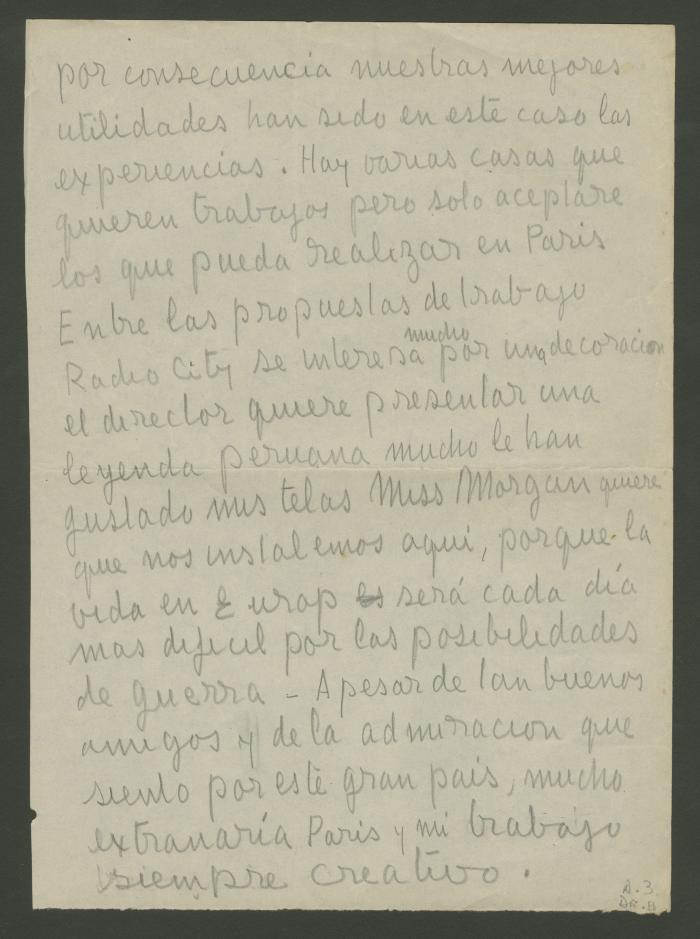 por consecuencia nuestras mejores
utilidades han sido en este caso las
experiencias. Hay varias casas que
quieren trabajos pero solo aceptare
los que pueda realizar en Paris
Entre las propuestas de trabajo
Radio City se interesa mucho por una decoracion
el director quiere presentar una
leyenda peruana mucho le han
gustado mis telas Miss Morgan quiere
que nos instalemos aqui, porque la
vida en Europ es será cada día
mas dificil por las posibilidades
de guerra - Apesar de tan buenos
amigos y de la admiracion que
siento por este gran país, mucho
extranaría Paris y mi trabajo
siempre creativo.
A.3